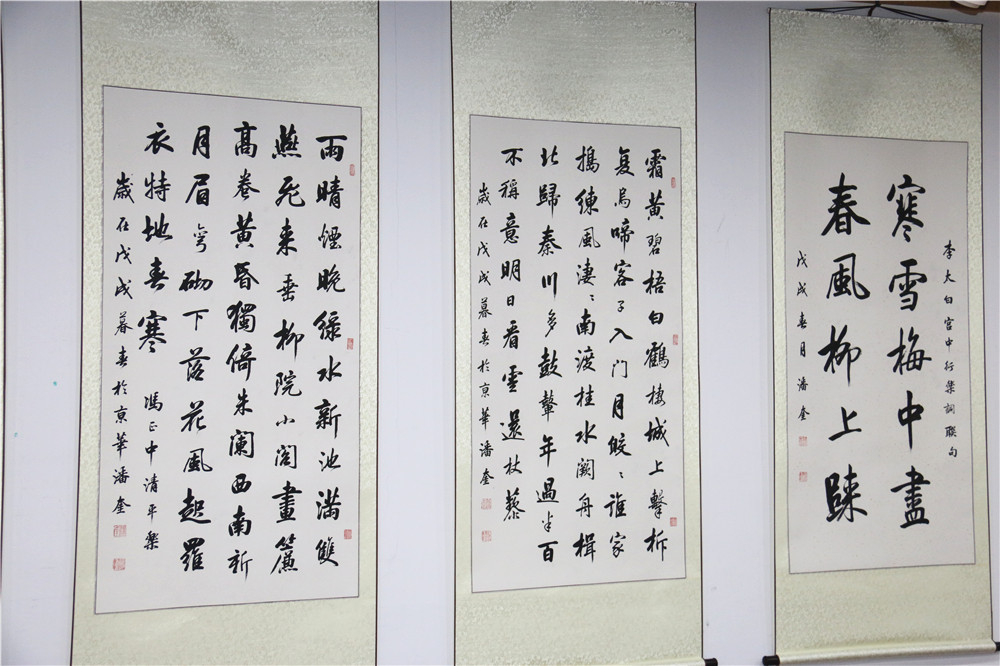 雨晴煙晚綠水新池滿雙
燕飛來垂柳院小閣畫簾
高卷黃昏獨倚朱闌西南新
月眉彎砌下落花風起羅
衣特地春寒 馮正中清平樂
歲在戊戌暮春於京華潘奎
霜黃碧梧白鶴棲城上擊柝
复烏啼客子入門月皎〻誰家
搗練風淒〻南渡桂水闕舟楫
北歸秦川多鼓鼙年過半百
不稱意明日看雲還杖藜
歲在戊戌暮春於京華潘奎
李太白宮中行樂詞聯句
寒雪梅中盡
春風柳上歸
戊戌春月潘奎